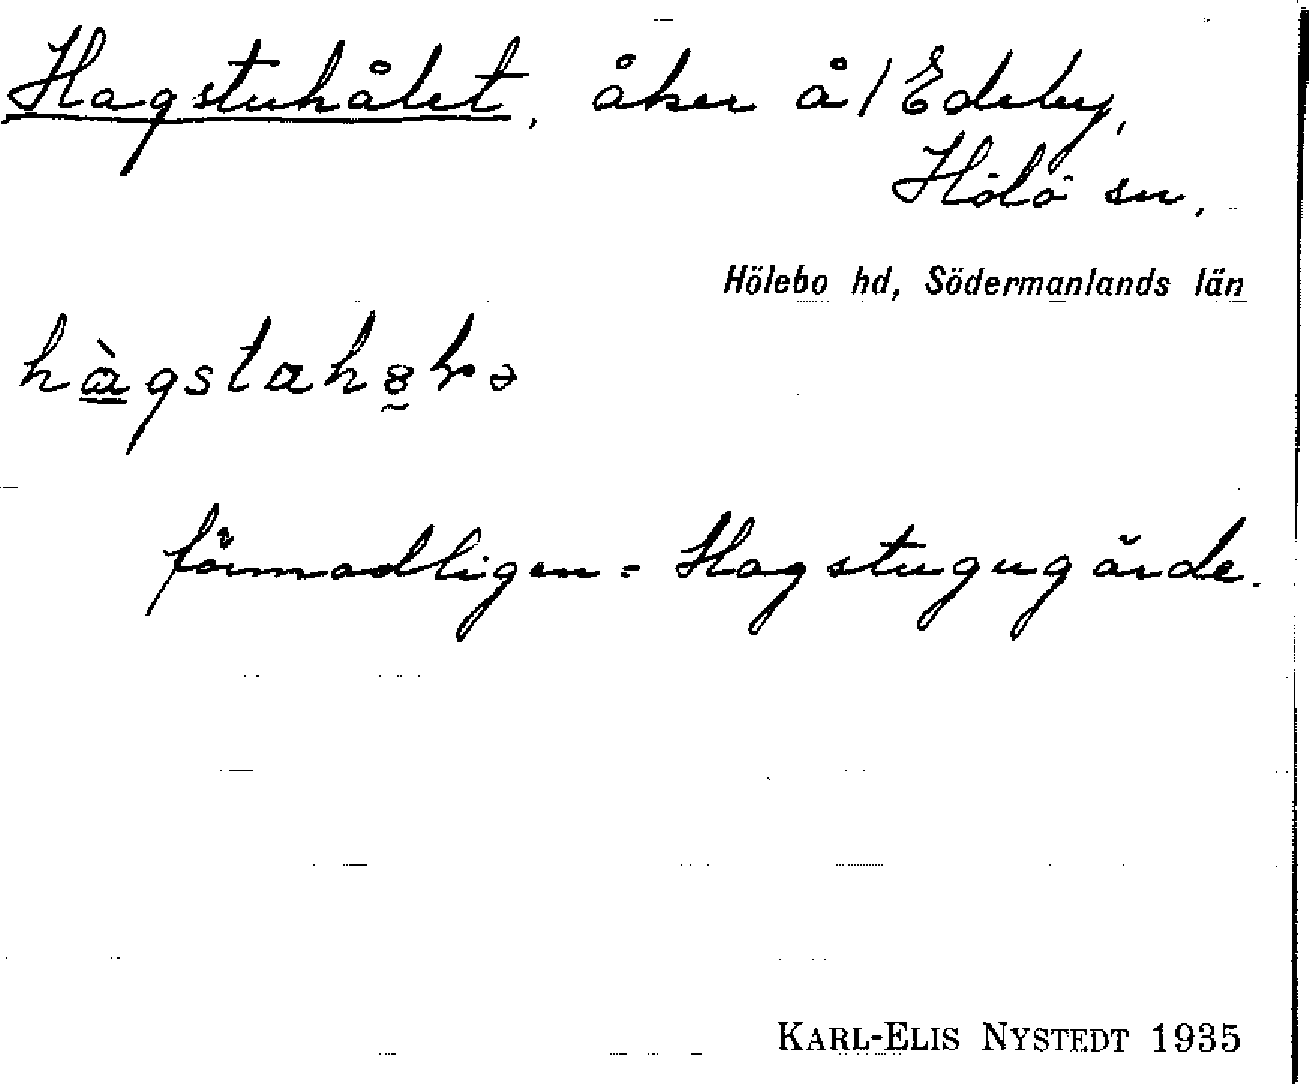 Hagstuhålet, åker å/Edeby,
Hölö sn,
Hölebo hd, Södermanlands län
förmodligen = Hagstugugärde.
KARL-ELIS NYSTEDT 1935